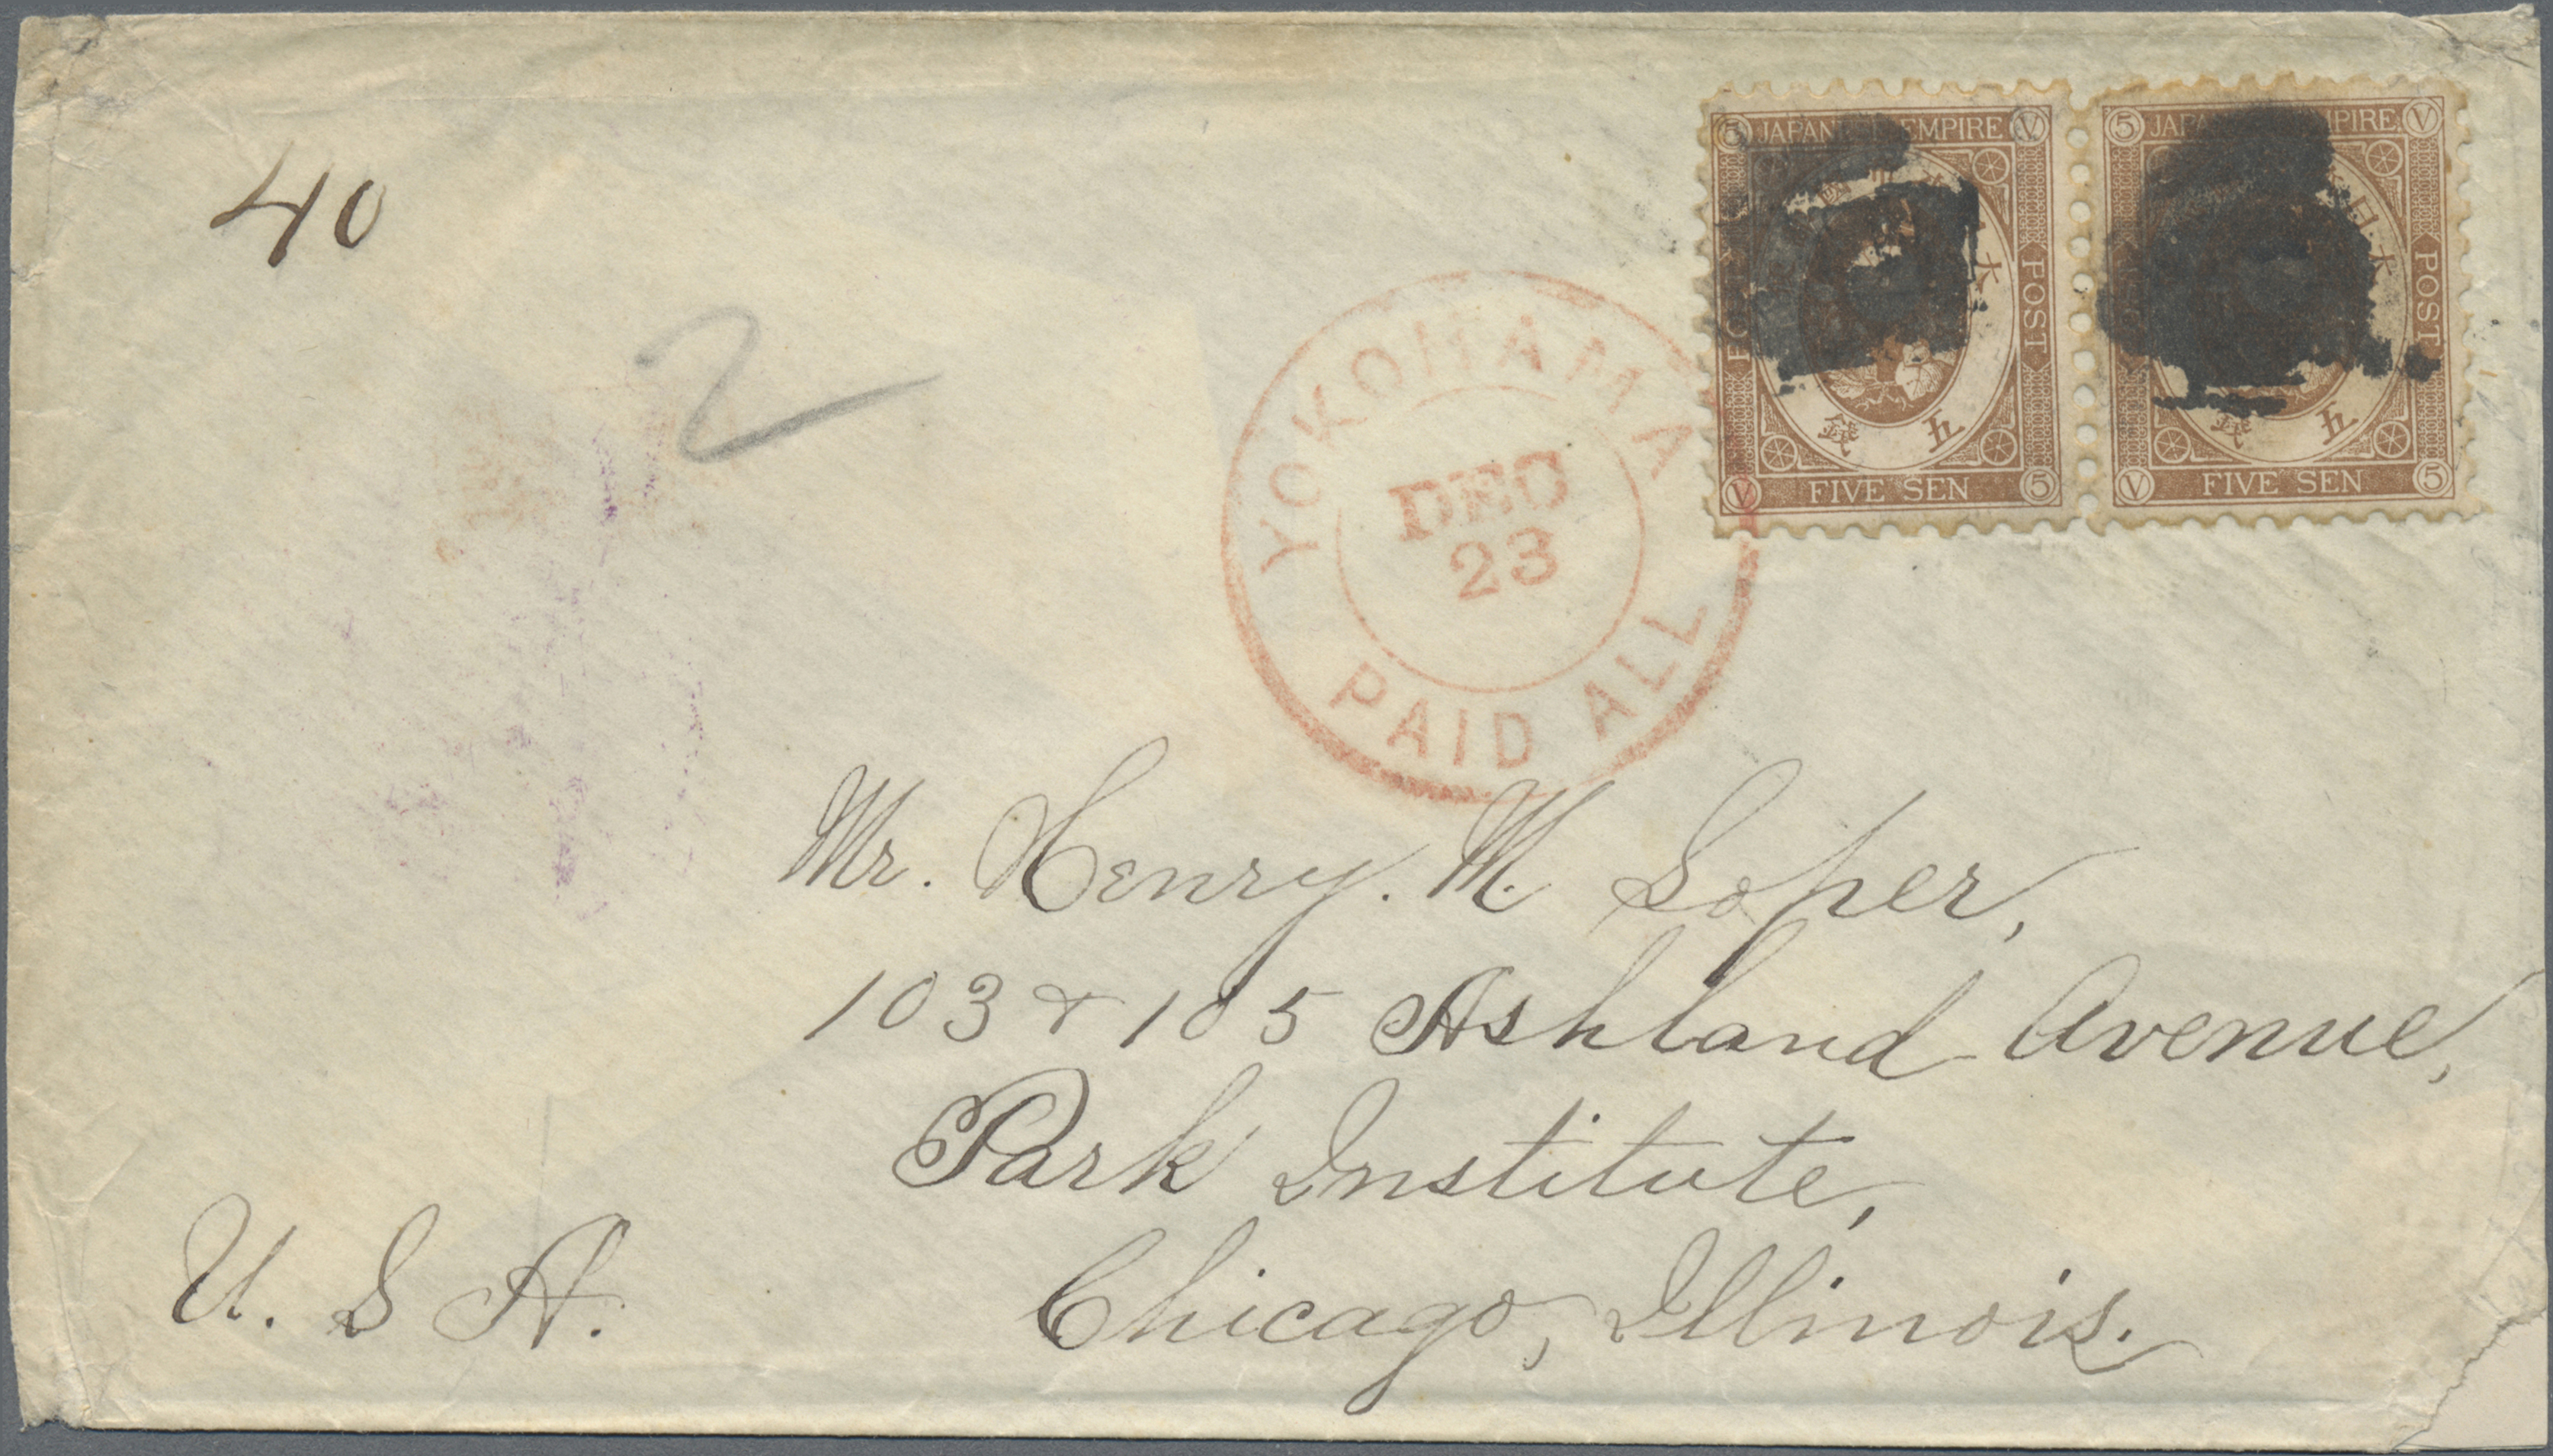 40
2
YOKOHAMA
DEC
23
PAID ALL
5 JAPANESE EMPIRE V
POST
五 錢
V FIVE SEN 5
5 JAPANESE EMPIRE V
日 本
POST
五 錢
V FIVE SEN 5
Mr. Henry. M. Soper,
103 & 105 Ashland Avenue,
Park Institute,
Chicago, Illinois.
U. S A.